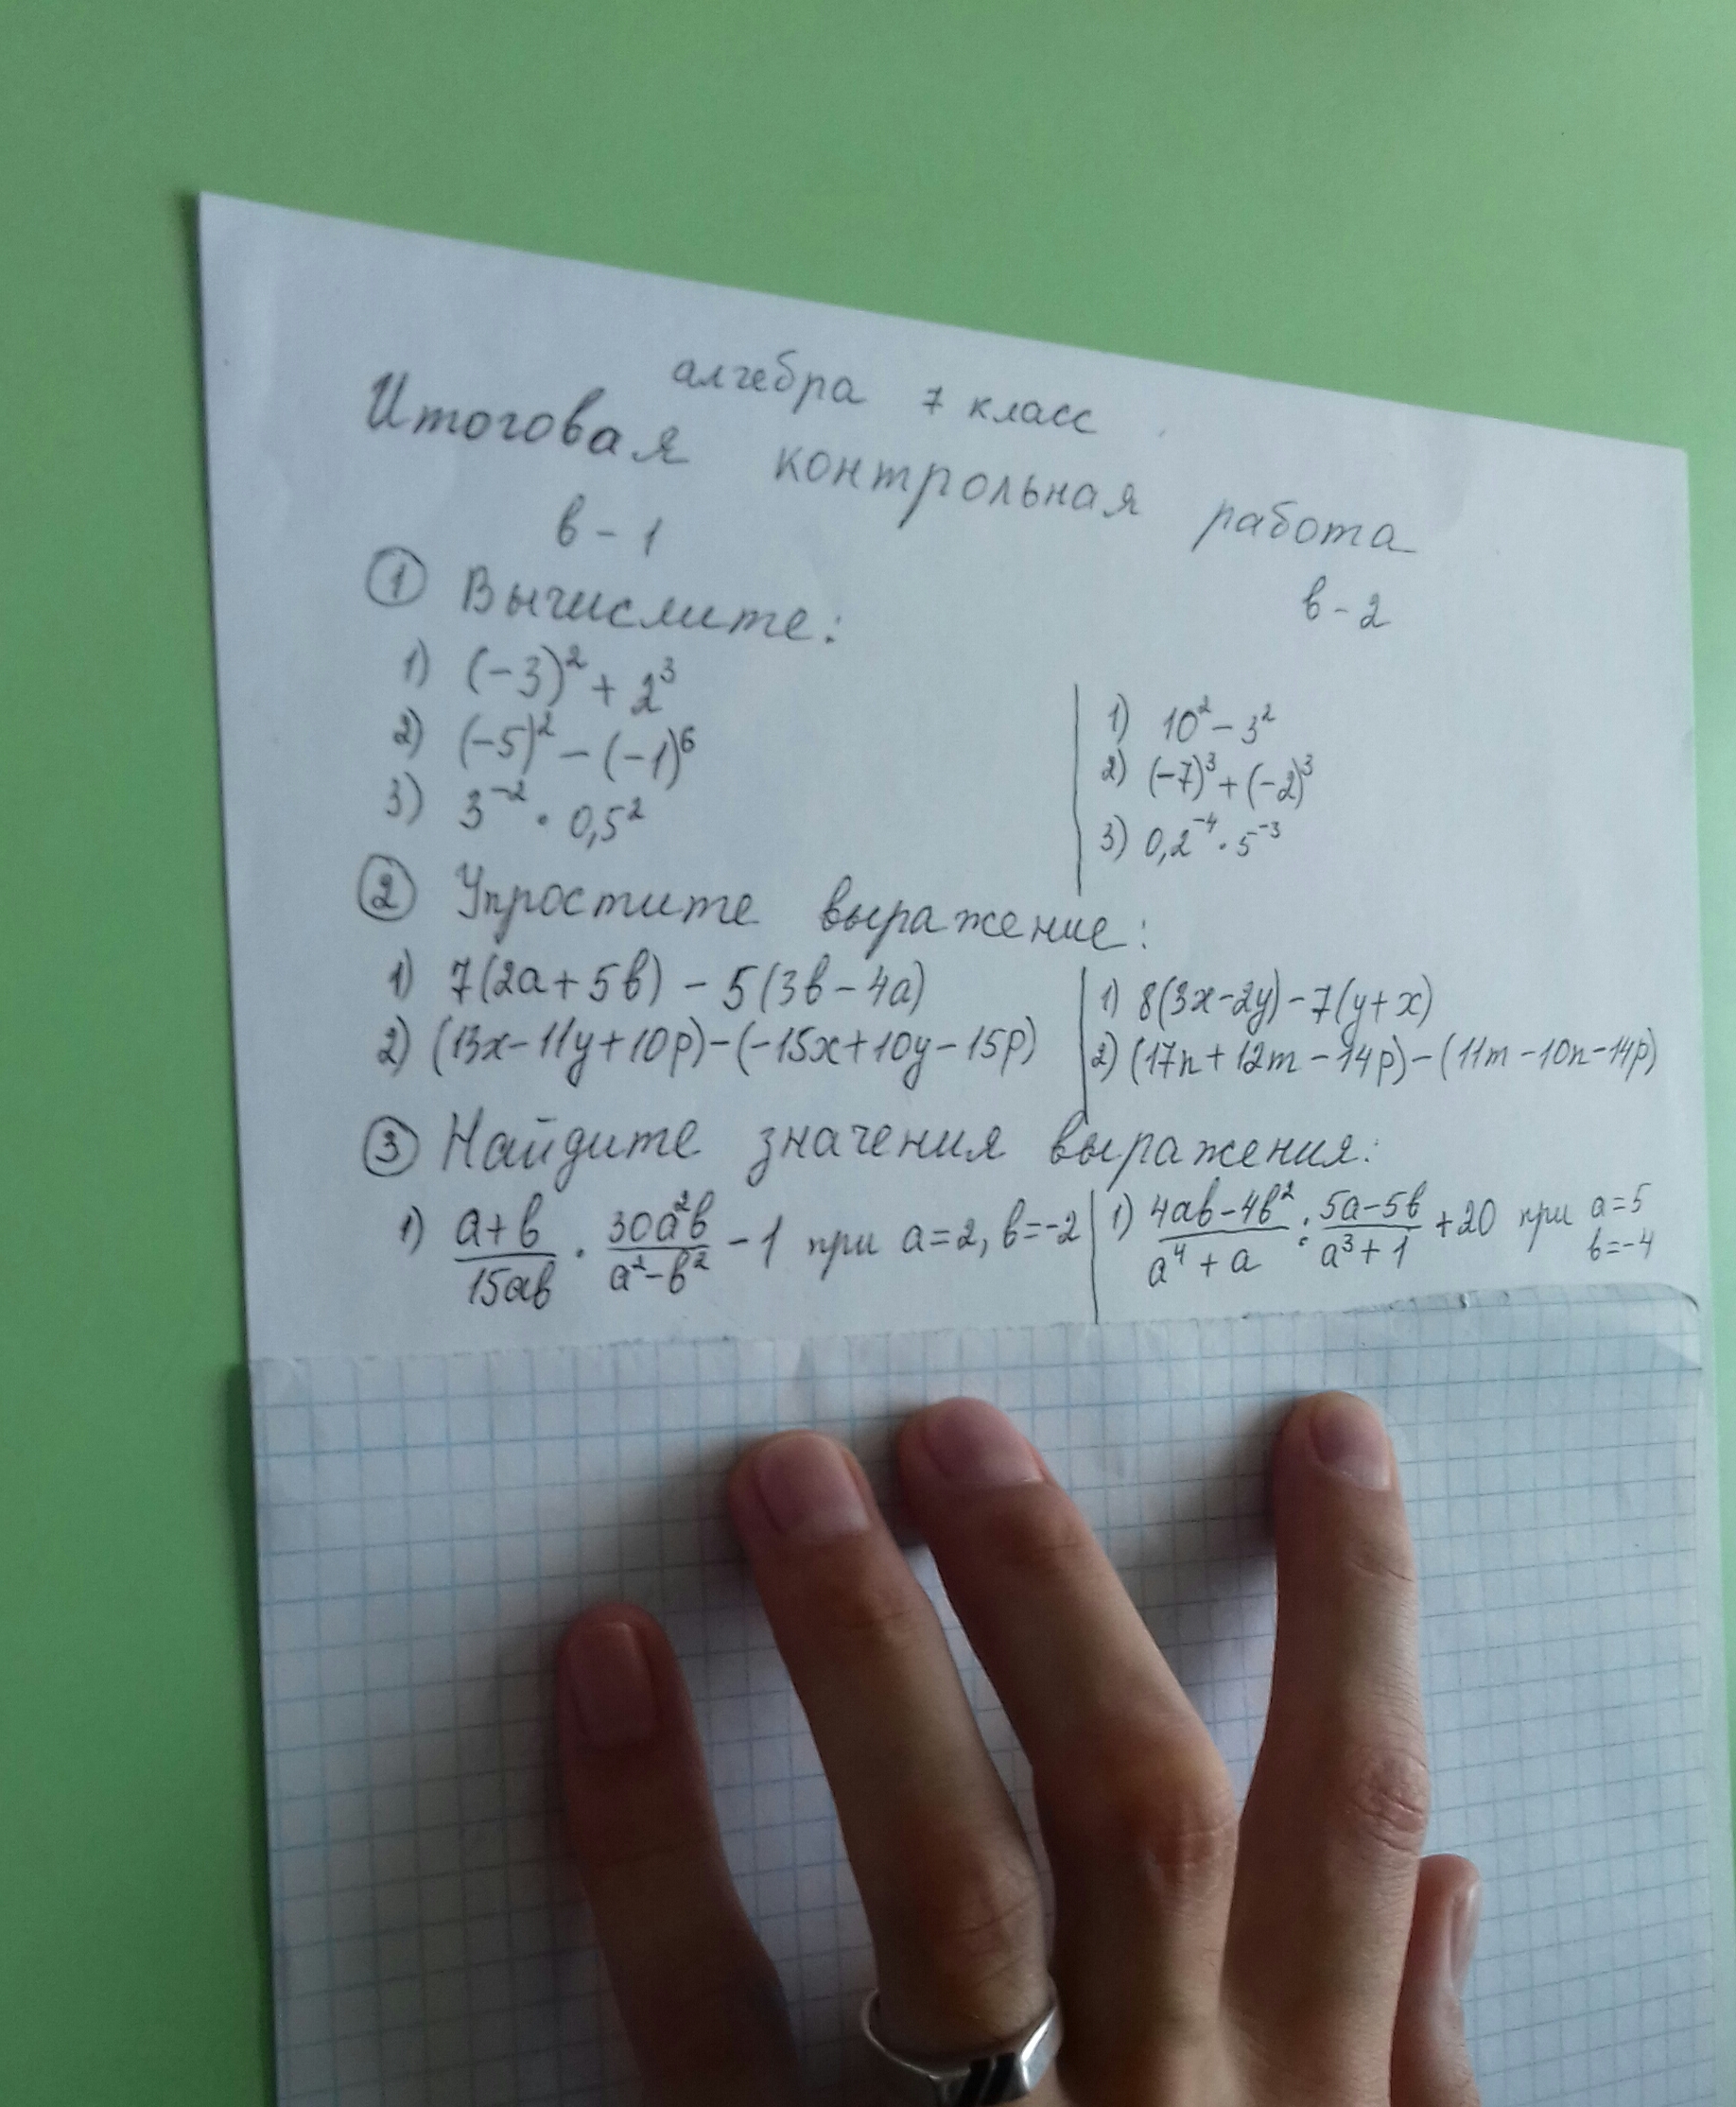 алгебра 7 класс
Итоговая контрольная работа
в - 1
в - 2
① Вычислите:
1) (-3)² + 2³
2) (-5)² - (-1)⁶
3) 3⁻² · 0,5²
1) 10² - 3²
2) (-7)³ + (-2)³
3) 0,2⁻⁴ · 5⁻³
② Упростите выражение:
1) 7(2а + 5в) - 5(3в - 4а)
2) (13x - 11y + 10p) - (-15x + 10y - 15p)
1) 8(3x - 2y) - 7(y + x)
2) (17n + 12m - 14p) - (11m - 10n - 14p)
③ Найдите значения выражения:
1) (а + в)/(15ав) · (30а²в)/(а² - в²) - 1 при а = 2, в = -2
1) (4ав - 4в²)/(а⁴ + а) : (5а - 5в)/(а³ + 1) + 20 при а = 5
в = -4